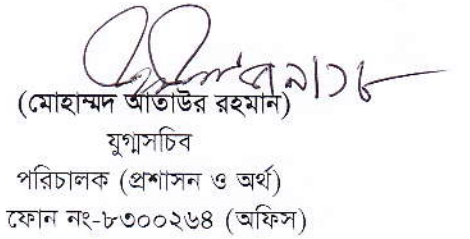 (মোহাম্মদ আতাউর রহমান)
যুগ্মসচিব
পরিচালক (প্রশাসন ও অর্থ)
ফোন নং-৮৩০০২৬৪ (অফিস)